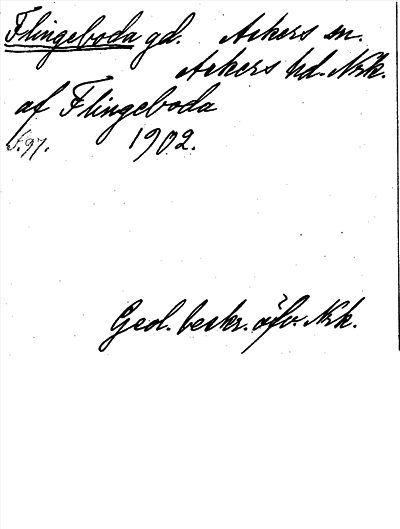 Flingeboda gd. Askers sn.
Askers hd. Nrk.
af Flingeboda
S. 97. 1902.
Geol. beskr. öfv. Nrk.